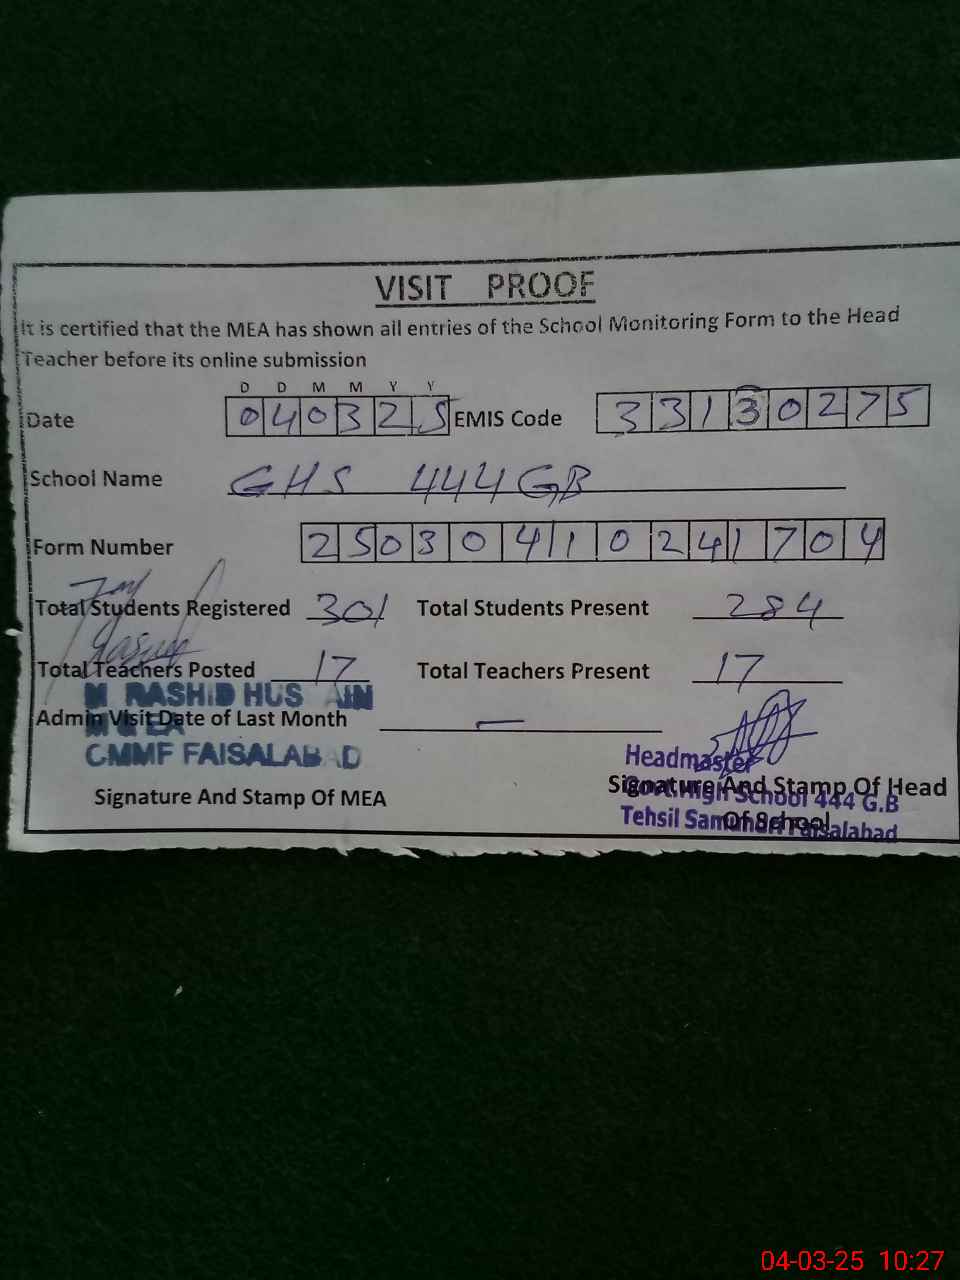 VISIT PROOF
It is certified that the MEA has shown all entries of the School Monitoring Form to the Head
Teacher before its online submission
D D M M Y Y
Date 040325 EMIS Code 33130275
School Name GHS 444 GB
Form Number 250304110241704
Total Students Registered 301 Total Students Present 284
Total Teachers Posted 17 Total Teachers Present 17
M RASHID HUS AIN
Admin Visit Date of Last Month —
M & EA
CMMF FAISALABAD
Signature And Stamp Of MEA
Headmaster
Signature And Stamp Of Head
Govt.High School 444 G.B
Of School
Tehsil Samundri Faisalabad
04-03-25 10:27